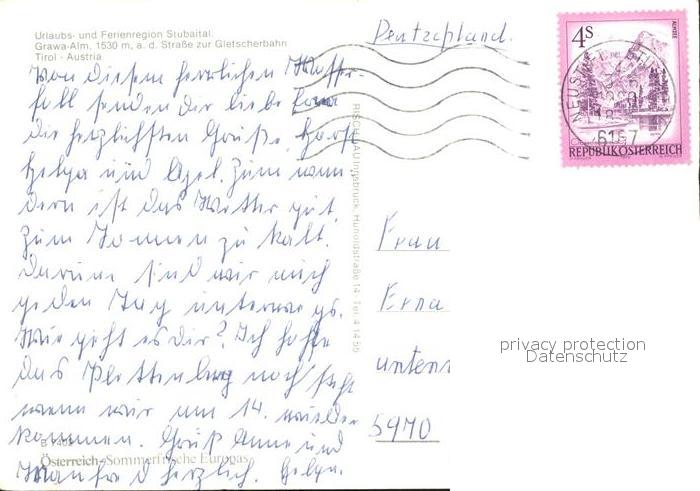 Urlaubs- und Ferienregion Stubaital.
Grawa-Alm, 1530 m, a. d. Straße zur Gletscherbahn
Tirol - Austria
Von diesem herrlichen Wasser-
fall senden dir liebe Erna
die herzlichsten Grüße, Horst
Helga und Axel. Zum wan-
dern ist das Wetter gut,
zum Sonnen zu kalt.
Darum sind wir auch
jeden Tag unterwegs.
Wie geht es dir? Ich hoffe
das Plettenberg noch steht
wenn wir am 14. wieder
kommen. Gruß Anne und
Manfred herzlich. Helga.
Österreich-Sommerfrische Europas
RISCHLAU Innsbruck, Hunoldstraße 14, Tel. 41455
Deutschland.
4S
ALMSEE
NEUSTIFT
6167
REPUBLIK ÖSTERREICH
Frau
Erna
5970
privacy protection
Datenschutz